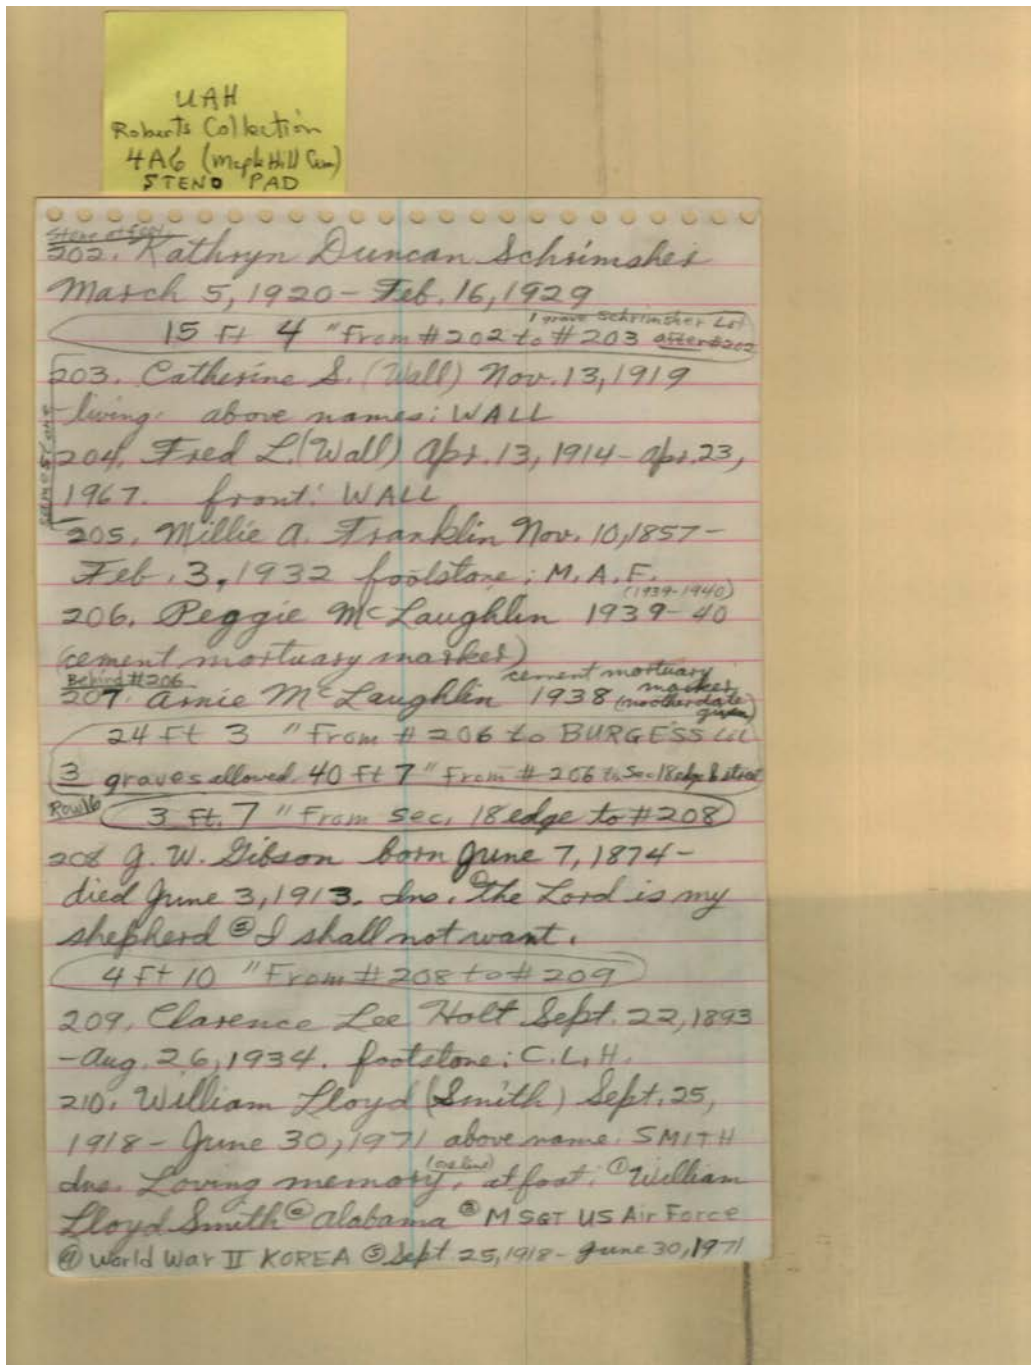 UAH
Roberts Collection
4A6 (Maple Hill Cem)
STENO PAD
Stone at foot
202. Kathryn Duncan Schrimsher
March 5, 1920 - Feb. 16, 1929
1 grave Schrimsher Lot
15 Ft 4 " From #202 to #203 after #202
203. Catherine S. (Wall) Nov. 13, 1919
- living. above names: WALL
same stone
204. Fred L. (Wall) Apr. 13, 1914 - Apr. 23,
1967. front: WALL
205. Millie A. Franklin Nov. 10, 1857 -
Feb. 3, 1932 footstone: M. A. F.
(1939-1940)
206. Peggie McLaughlin 1939-40
(cement mortuary marker)
Behind #206
cement mortuary
207. Arnie McLaughlin 1938 marker
(no other date given)
24 Ft 3 " From # 206 to BURGESS Lot
3 graves allowed. 40 Ft 7 " From # 206 to Sec 18 edge & street
Row 16
3 Ft. 7 " From Sec. 18 edge to #208
208 G. W. Gibson born June 7, 1874 -
died June 3, 1913. Ins. ① The Lord is my
shepherd ② I shall not want.
4 Ft 10 " From # 208 to # 209
209. Clarence Lee Holt Sept. 22, 1893
- Aug. 26, 1934. footstone: C. L. H.
210. William Lloyd (Smith) Sept. 25,
1918 - June 30, 1971 above name. SMITH
(one line)
Ins. Loving memory, at foot: ① William
Lloyd Smith ② Alabama ③ M SGT US Air Force
④ World War II KOREA ⑤ Sept. 25, 1918 - June 30, 1971